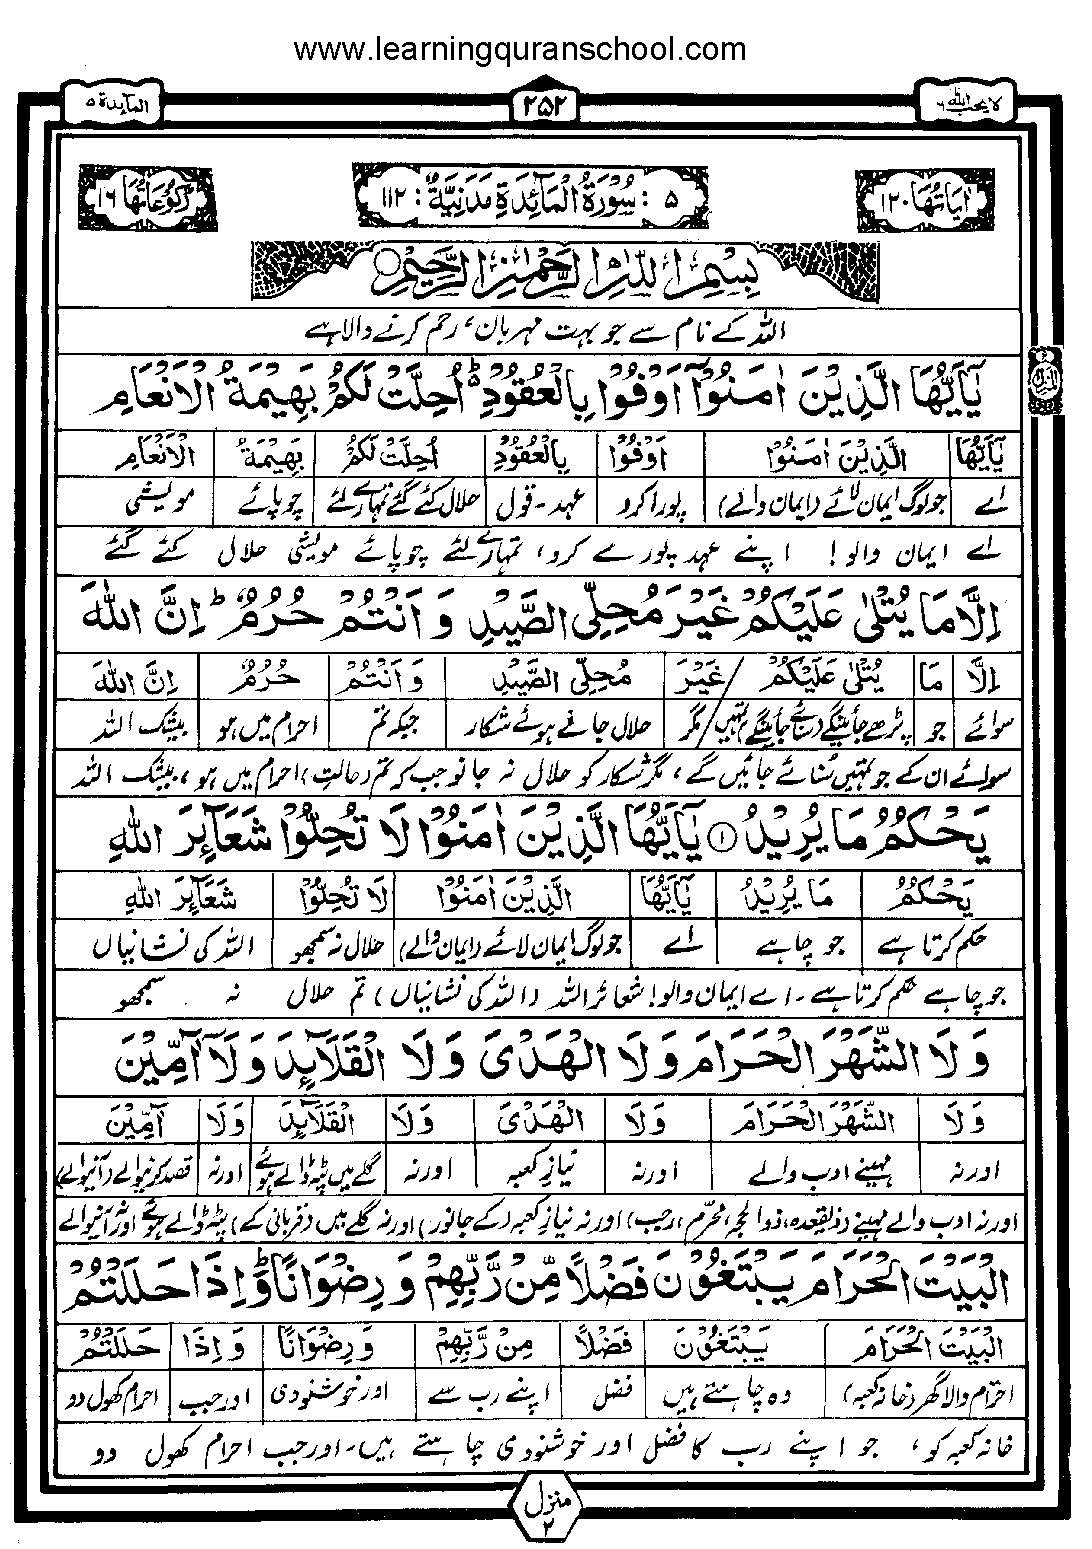 www.learningquranschool.com
لا یحب اللہ ٦ ٢٥٢ المآىِٕدة ٥
اٰیَاتُهَا ١٢٠ ٥ : سُوْرَةُ الْمَآئِدَةِ مَدَنِیَّةٌ : ١١٢ رُكُوْعَاتُهَا ١٦
بِسْمِ اللّٰهِ الرَّحْمٰنِ الرَّحِیْمِ
اللہ کے نام سے جو بہت مہربان، رحم کرنے والا ہے
یٰۤاَیُّهَا الَّذِیْنَ اٰمَنُوْۤا اَوْفُوْا بِالْعُقُوْدِ ؕ اُحِلَّتْ لَكُمْ بَهِیْمَةُ الْاَنْعَامِ
یٰۤاَیُّهَا الَّذِیْنَ اٰمَنُوْۤا اَوْفُوْا بِالْعُقُوْدِ اُحِلَّتْ لَكُمْ بَهِیْمَةُ الْاَنْعَامِ
اے جو لوگ ایمان لائے (ایمان والے) پورا کرو عہد - قول حلال کئے گئے تمہارے لئے چوپائے مویشی
اے ایمان والو! اپنے عہد پورے کرو، تمہارے لئے چوپائے مویشی حلال کئے گئے
اِلَّا مَا یُتْلٰى عَلَیْكُمْ غَیْرَ مُحِلِّی الصَّیْدِ وَ اَنْتُمْ حُرُمٌ ؕ اِنَّ اللّٰهَ
اِلَّا مَا یُتْلٰى عَلَیْكُمْ / غَیْرَ مُحِلِّی الصَّیْدِ وَ اَنْتُمْ حُرُمٌ اِنَّ اللّٰهَ
سوائے جو پڑھے جائینگے (سنائے جائینگے) تمہیں / مگر حلال جانے ہوئے شکار جبکہ تم احرام میں ہو بیشک اللہ
سوائے ان کے جو تمہیں سُنائے جائیں گے، مگر شکار کو حلال نہ جانو جب کہ تم (حالت) احرام میں ہو، بیشک اللہ
یَحْكُمُ مَا یُرِیْدُ ۝١ یٰۤاَیُّهَا الَّذِیْنَ اٰمَنُوْا لَا تُحِلُّوْا شَعَآىِٕرَ اللّٰهِ
یَحْكُمُ مَا یُرِیْدُ یٰۤاَیُّهَا الَّذِیْنَ اٰمَنُوْا لَا تُحِلُّوْا شَعَآىِٕرَ اللّٰهِ
حکم کرتا ہے جو چاہے اے جو لوگ ایمان لائے (ایمان والے) حلال نہ سمجھو اللہ کی نشانیاں
جو چاہے حکم کرتا ہے۔ اے ایمان والو! شعائر اللہ (اللہ کی نشانیاں) تم حلال نہ سمجھو
وَ لَا الشَّهْرَ الْحَرَامَ وَ لَا الْهَدْیَ وَ لَا الْقَلَآىِٕدَ وَ لَاۤ آٰمِّیْنَ
وَ لَا الشَّهْرَ الْحَرَامَ وَ لَا الْهَدْیَ وَ لَا الْقَلَآىِٕدَ وَ لَا آٰمِّیْنَ
اور نہ مہینے ادب والے اور نہ نیاز کعبہ اور نہ گلے میں پٹہ ڈالے ہوئے اور نہ قصد کرنیوالے (آنیوالے)
اور نہ ادب والے مہینے (ذیقعدہ، ذوالحجہ، محرّم، رجب) اور نہ نیاز کعبہ (کے جانور) اور نہ گلے میں (قربانی کے) پٹہ ڈالے ہوئے اور نہ آنیوالے
الْبَیْتَ الْحَرَامَ یَبْتَغُوْنَ فَضْلًا مِّنْ رَّبِّهِمْ وَ رِضْوَانًا ؕ وَ اِذَا حَلَلْتُمْ
الْبَیْتَ الْحَرَامَ یَبْتَغُوْنَ فَضْلًا مِنْ رَّبِّهِمْ وَ رِضْوَانًا وَ اِذَا حَلَلْتُمْ
احترام والا گھر (خانہ کعبہ) وہ چاہتے ہیں فضل اپنے رب سے اور خوشنودی اور جب احرام کھول دو
خانہ کعبہ کو، جو اپنے رب کا فضل اور خوشنودی چاہتے ہیں۔ اور جب احرام کھول دو
منزل ٢